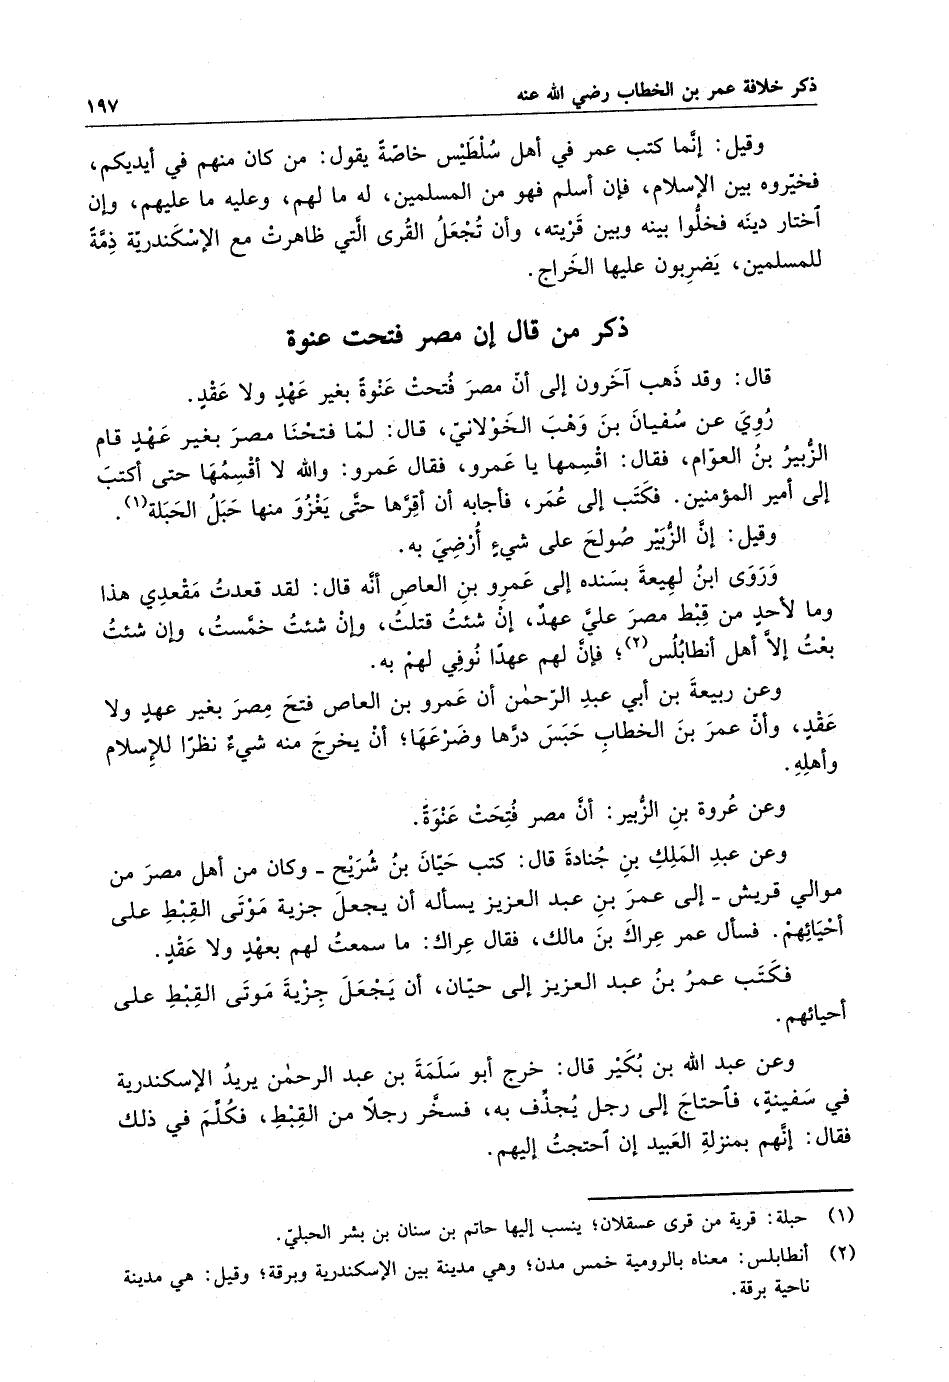 ذكر خلافة عمر بن الخطاب رضي الله عنه
١٩٧
وقيل: إنَّما كتب عمر في أهل سُلْطَيْس خاصّةً يقول: من كان منهم في أيديكم،
فخيّروه بين الإسلام، فإن أسلم فهو من المسلمين، له ما لهم، وعليه ما عليهم، وإن
ٱختار دينَه فخلُّوا بينه وبين قَرْيته، وأن تُجْعَلُ القُرى الَّتي ظاهرتْ مع الإسْكَندريّة ذِمَّةً
للمسلمين، يَضرِبون عليها الخَراج.
ذكر من قال إن مصر فتحت عنوة
قال: وقد ذَهب آخَرون إلى أنّ مصرَ فُتحتْ عَنْوةً بغير عَهْدٍ ولا عَقْدٍ.
رُوِيَ عن سُفيانَ بنَ وَهْبَ الخَوْلانيّ، قال: لمّا فتحْنَا مصرَ بغير عَهْدٍ قام
الزُّبيرُ بنُ العوّام، فقال: اقْسِمها يا عَمرو، فقال عَمرو: والله لا أقْسِمُهَا حتى أكتبَ
إلى أمير المؤمنين. فكَتَب إلى عُمَر، فأجابه أن أقِرَّها حتَّى يَغْزُوَ منها حَبَلُ الحَبَلة(١).
وقيل: إنَّ الزُّبَيْر صُولحَ على شيءٍ أُرْضِيَ به.
وَرَوَى ابنُ لهِيعةَ بسَنده إلى عَمرِو بنِ العاصِ أنَّه قال: لقد قعدتُ مَقْعدِي هذا
وما لأحدٍ من قِبْط مصرَ عليَّ عهدٌ، إنْ شئتُ قتلتُ، وإنْ شئتُ خمَّستُ، وإن شئتُ
بعْتُ إلاَّ أهل أنطابُلُس(٢)؛ فإنَّ لهم عهدًا نُوفِي لهمْ به.
وعن ربيعةَ بن أبي عبدِ الرّحمٰن أن عَمرو بن العاص فتحَ مِصرَ بغير عهدٍ ولا
عَقْدٍ، وأنّ عمرَ بنَ الخطابِ حَبَسَ درَّها وضَرْعَهَا؛ أنْ يخرجَ منه شيءٌ نظرًا للإسلام
وأهلِهِ.
وعن عُروة بنِ الزُّبير: أنَّ مصر فُتِحَتْ عَنْوَةً.
وعن عبدِ المَلِكِ بنِ جُنادةَ قال: كتب حَيّانَ بنُ شُرَيْح ـ وكان من أهل مصرَ من
موالي قريش ـ إلى عمرَ بنِ عبد العزيز يسأله أن يجعلَ جزية مَوْتَى القِبْط على
أحْيَائِهِمْ. فسأل عمر عِراكَ بنَ مالك، فقال عِراك: ما سمعتُ لهم بعهْدٍ ولا عَقْدٍ.
فكَتَب عمرُ بنُ عبد العزيز إلى حيّان، أن يَجْعَلَ جِزْيةَ مَوتَى القِبْطِ على
أحيائهم.
وعن عبد الله بن بُكَيْر قال: خرج أبو سَلَمَةَ بن عبد الرحمٰن يريدُ الإسكندرية
في سَفينةٍ، فٱحتاجَ إلى رجل يُجذِّف به، فسخَّر رجلًا من القِبْطِ، فكُلِّمَ في ذلك
فقال: إنَّهم بمنزلةِ العَبيد إن ٱحتجتُ إليهم.
(١) حبلة: قرية من قرى عسقلان؛ ينسب إليها حاتم بن سنان بن بشر الحبليّ.
(٢) أنطابلس: معناه بالرومية خمس مدن؛ وهي مدينة بين الإسكندرية وبرقة؛ وقيل: هي مدينة
ناحية برقة.